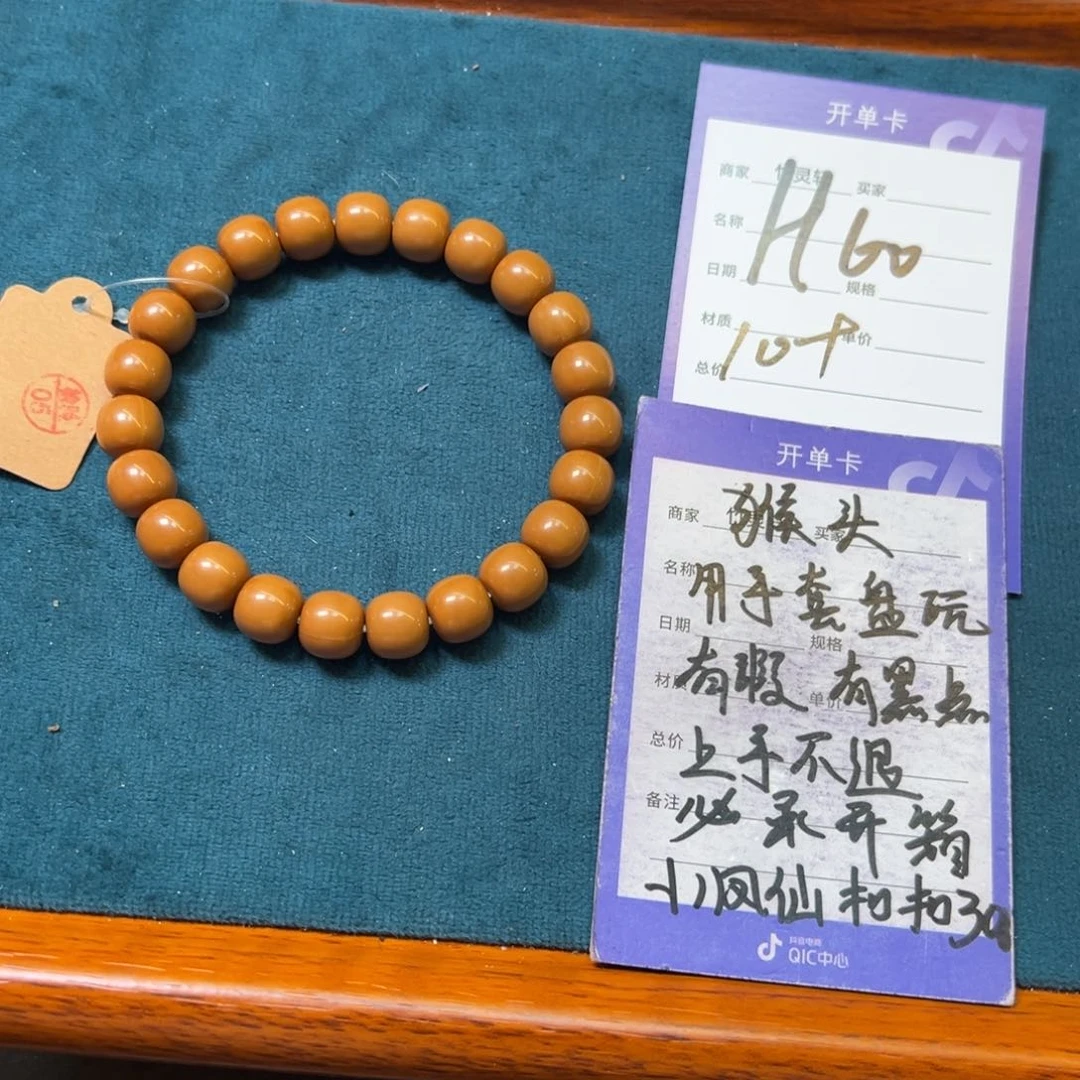 开单卡
商家 买家
名称
H60
日期 规格
材质 单价
10个
总价
开单卡
商家 买家
猴头
名称
用手套盘玩
日期 规格
有瑕 有黑点
材质 单价
总价
上手不退
备注
必录开箱
小凤仙扣扣39
抖音电商
QIC中心
05